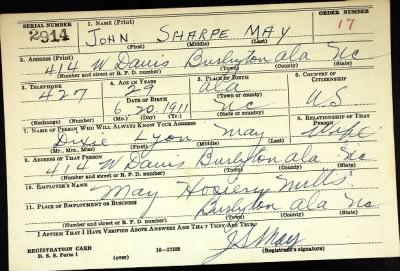 SERIAL NUMBER 1. NAME (Print) ORDER NUMBER
2914 JOHN SHARPE MAY 17
(First) (Middle) (Last)
2. ADDRESS (Print)
414 W Davis Burlington Ala NC
(Number and street or R. F. D. number) (Town) (County) (State)
3. TELEPHONE 4. AGE IN YEARS 5. PLACE OF BIRTH 6. COUNTRY OF CITIZENSHIP
427 29 Ala
DATE OF BIRTH (Town or county)
6-20-1911 NC U.S
(Exchange) (Number) (Mo.) (Day) (Yr.) (State or country)
7. NAME OF PERSON WHO WILL ALWAYS KNOW YOUR ADDRESS 8. RELATIONSHIP OF THAT PERSON
Dixie Lyon May Wife
(Mr., Mrs., Miss) (First) (Middle) (Last)
9. ADDRESS OF THAT PERSON
414 W Davis Burlington Ala Nc
(Number and street or R. F. D. number) (Town) (County) (State)
10. EMPLOYER'S NAME
May Hosiery Mills
11. PLACE OF EMPLOYMENT OR BUSINESS
Burlington Ala Nc
(Number and street or R. F. D. number) (Town) (County) (State)
I AFFIRM THAT I HAVE VERIFIED ABOVE ANSWERS AND THAT THEY ARE TRUE.
REGISTRATION CARD JS May
D. S. S. Form 1 (over) (Registrant's signature)